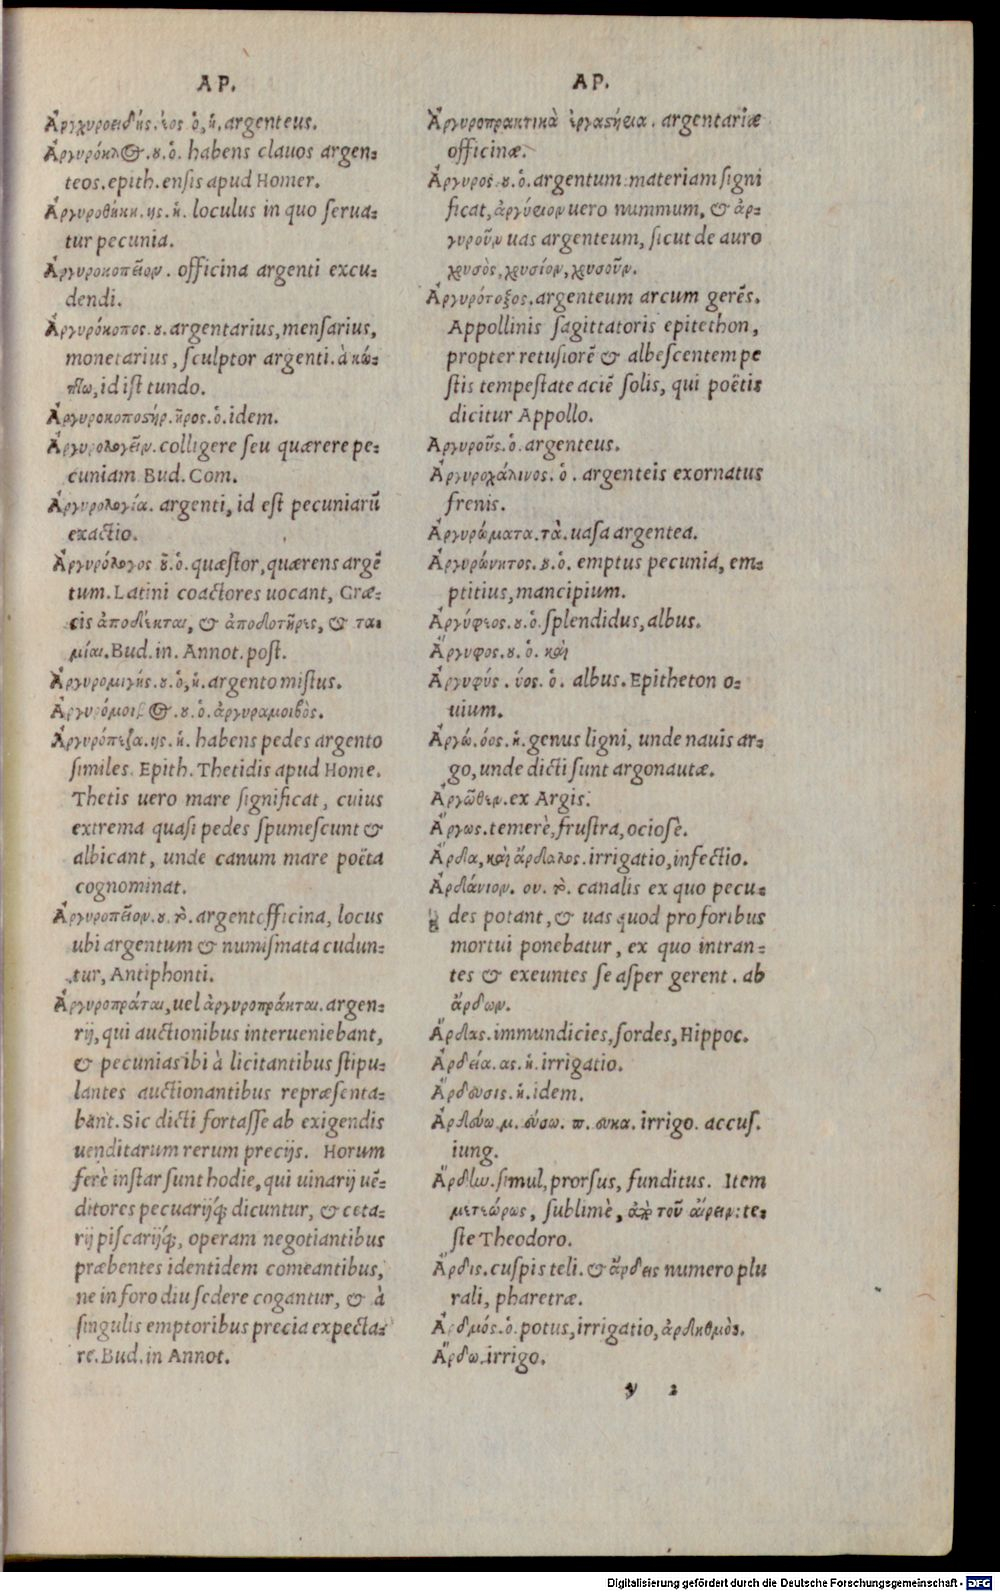 AP.
Ἀργυροειδής. έος ὁ, ἡ. argenteus.
Ἀργυρόηλος. ου. ὁ. habens clauos argen-
teos. epith. ensis apud Homer.
Ἀργυροθήκη. ης. ἡ. loculus in quo serua-
tur pecunia.
Ἀργυροκοπεῖον. officina argenti excu-
dendi.
Ἀργυρόκοπος. ου. argentarius, mensarius,
monetarius, sculptor argenti. à κό-
πτω, id ist tundo.
Ἀργυροκοποστήρ. ῆρος. ὁ. idem.
Ἀργυρολογεῖν. colligere seu quærere pe-
cuniam Bud. Com.
Ἀργυρολογία. argenti, id est pecuniarũ
exactio.
Ἀργυρόλογος ου. ὁ. quæstor, quærens argẽ
tum. Latini coactores uocant, Græ-
cis ἀποδέκται, & ἀποδοτῆρες, & τα-
μίαι. Bud. in. Annot. post.
Ἀργυρομιγής. ου. ὁ, ἡ. argento mistus.
Ἀργυρόμοιβος. ου. ὁ. ἀργυραμοιβὸς.
Ἀργυρόπεζα. ης. ἡ. habens pedes argento
similes. Epith. Thetidis apud Home.
Thetis uero mare significat, cuius
extrema quasi pedes spumescunt &
albicant, unde canum mare poëta
cognominat.
Ἀργυροπεῖον. ου. τὸ. argentofficina, locus
ubi argentum & numismata cudun-
tur, Antiphonti.
Ἀργυροπράται, uel ἀργυροπράκται. argen-
rij, qui auctionibus interueniebant,
& pecunias ibi à licitantibus stipu-
lantes auctionantibus repræsenta-
bant. Sic dicti fortasse ab exigendis
uenditarum rerum precijs. Horum
ferè instar sunt hodie, qui uinarij uẽ-
ditores pecuarijq́; dicuntur, & ceta-
rij piscarijq́;, operam negotiantibus
præbentes identidem comeantibus,
ne in foro diu sedere cogantur, & à
singulis emptoribus precia expecta-
re. Bud. in Annot.
AP.
Ἀργυροπρακτικὰ ἐργαστήρια. argentariæ
officinæ.
Ἄργυρος ου. ὁ. argentum: materiam signi
ficat, ἀργύριον uero nummum, & ἀρ-
γυροῦν uas argenteum, sicut de auro
χρυσὸς, χρυσίον, χρυσοῦν.
Ἀργυρότοξος. argenteum arcum gerẽs.
Appollinis sagittatoris epitethon,
propter retusiorẽ & albescentem pe
stis tempestate aciẽ solis, qui poëtis
dicitur Appollo.
Ἀργυροῦς. ὁ. argenteus.
Ἀργυροχάλινος. ὁ. argenteis exornatus
frenis.
Ἀργυρώματα. τὰ. uasa argentea.
Ἀργυρώνητος. ου. ὁ. emptus pecunia, em-
ptitius, mancipium.
Ἀργύφεος. ου. ὁ. splendidus, albus.
Ἄργυφος. ου. ὁ. καὶ
Ἀργυφύς. ύος. ὁ. albus. Epitheton o-
uium.
Ἀργώ. όος. ἡ. genus ligni, unde nauis ar-
go, unde dicti sunt argonautæ.
Ἀργῶθεν. ex Argis.
Ἄργως. temerè, frustra, ociosè.
Ἄρδα, καὶ ἄρδαλος. irrigatio, infectio.
Ἀρδάνιον. ου. τὸ. canalis ex quo pecu-
des potant, & uas quod pro foribus
mortui ponebatur, ex quo intran-
tes & exeuntes se asper gerent. ab
ἄρδων.
Ἄρδας. immundicies, sordes, Hippoc.
Ἀρδεία. ας. ἡ. irrigatio.
Ἄρδευσις. ἡ. idem.
Ἀρδεύω. μ. εύσω. π. ευκα. irrigo. accus.
iung.
Ἄρδην. simul, prorsus, funditus. Item
μετεώρως, sublimè, ἀπὸ τοῦ αἴρειν: te-
ste Theodoro.
Ἄρδις. cuspis teli. & ἄρδεις numero plu
rali, pharetræ.
Ἀρδμός. ὁ. potus, irrigatio, ἀρδηθμὸς.
Ἄρδω. irrigo.
y 2
Digitalisierung gefördert durch die Deutsche Forschungsgemeinschaft - DFG